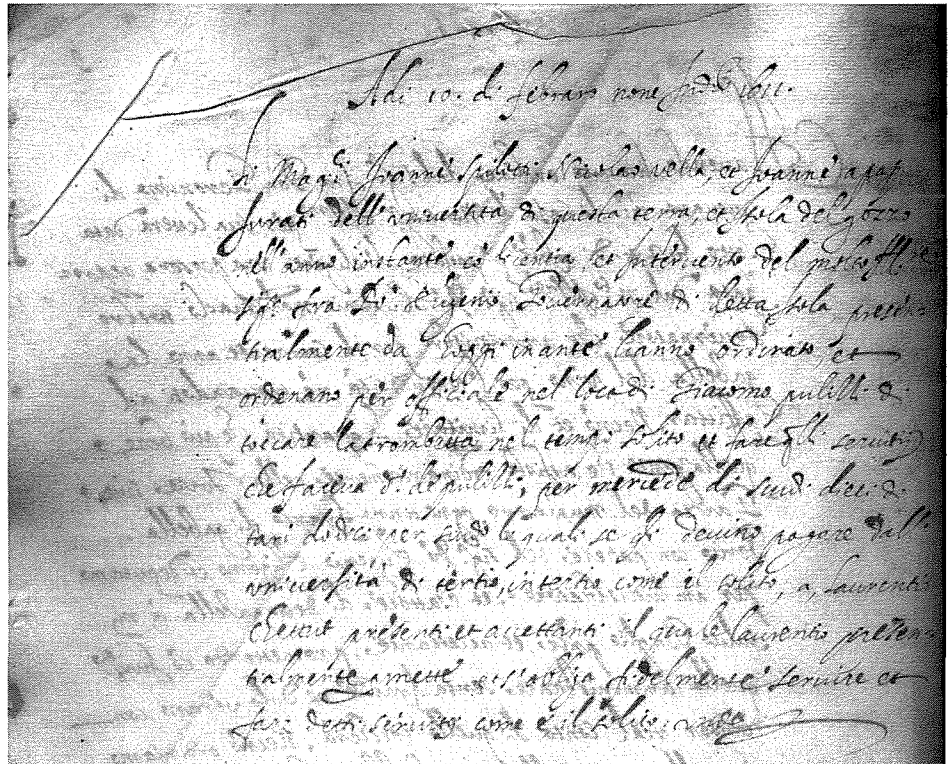 Adi 10. di febraro none Ind.e 1611.
Li Mag.ci Joanne Spiteri, Nicolao vella, et Joanne
Jurati dell'università di questa terra, et Isola del gozzo
nell'anno instante, cõ licentia, et Intervento del molto Ill.e
sig.r fra Governatore di detta Isola presen
tialmente da hoggi inante hanno ordinato, et
ordenano per officiale nel loco di Giacomo pulilli di
toccare la trombetta nel tempo solito et fare gli servitij
che faceva d.o de pulilli, per mercede di scudi dieci di
tari dodeci per scudo le quali se gli devino pagare dall'
università di tertio, in tertio come il solito, a, laurenti
presenti et accettanti il quale laurentio presen
tialmente et s'obliga fidelmente servire et
far detti servitij come è il solito unde